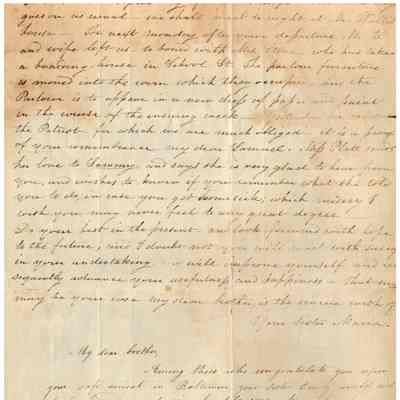 goes on as usual - we shall meet to night at Mr.
house - The next monday after your departure Mr. T.
and wife left us to board with Mrs. who has taken
a boarding house in School St. The parlour furniture
is moved into the room which they occupied, and the
Parlour is to appear in a new dress of paper and paint
in the course of the ensuing week -
the Patriot for which we are much obliged - it is a proof
of your remembrance my dear Samuel. Miss Platt sends
her love to Sammy, and says she is very glad to hear from
you, and wishes to know if you remember what she told
you to do, in case you got homesick, which misery I
wish you may never feel to any great degree.
Do your best in the present - and look forward with hope
to the future, and I doubt not you will meet with success
in your undertaking - & will improve yourself and
sequently advance your usefulness and happiness - That such
may be your case my dear brother, is the sincere wish of
Your sister Maria.
My dear brother,
Among those who congratulate you upon
your safe arrival in Baltimore your sister